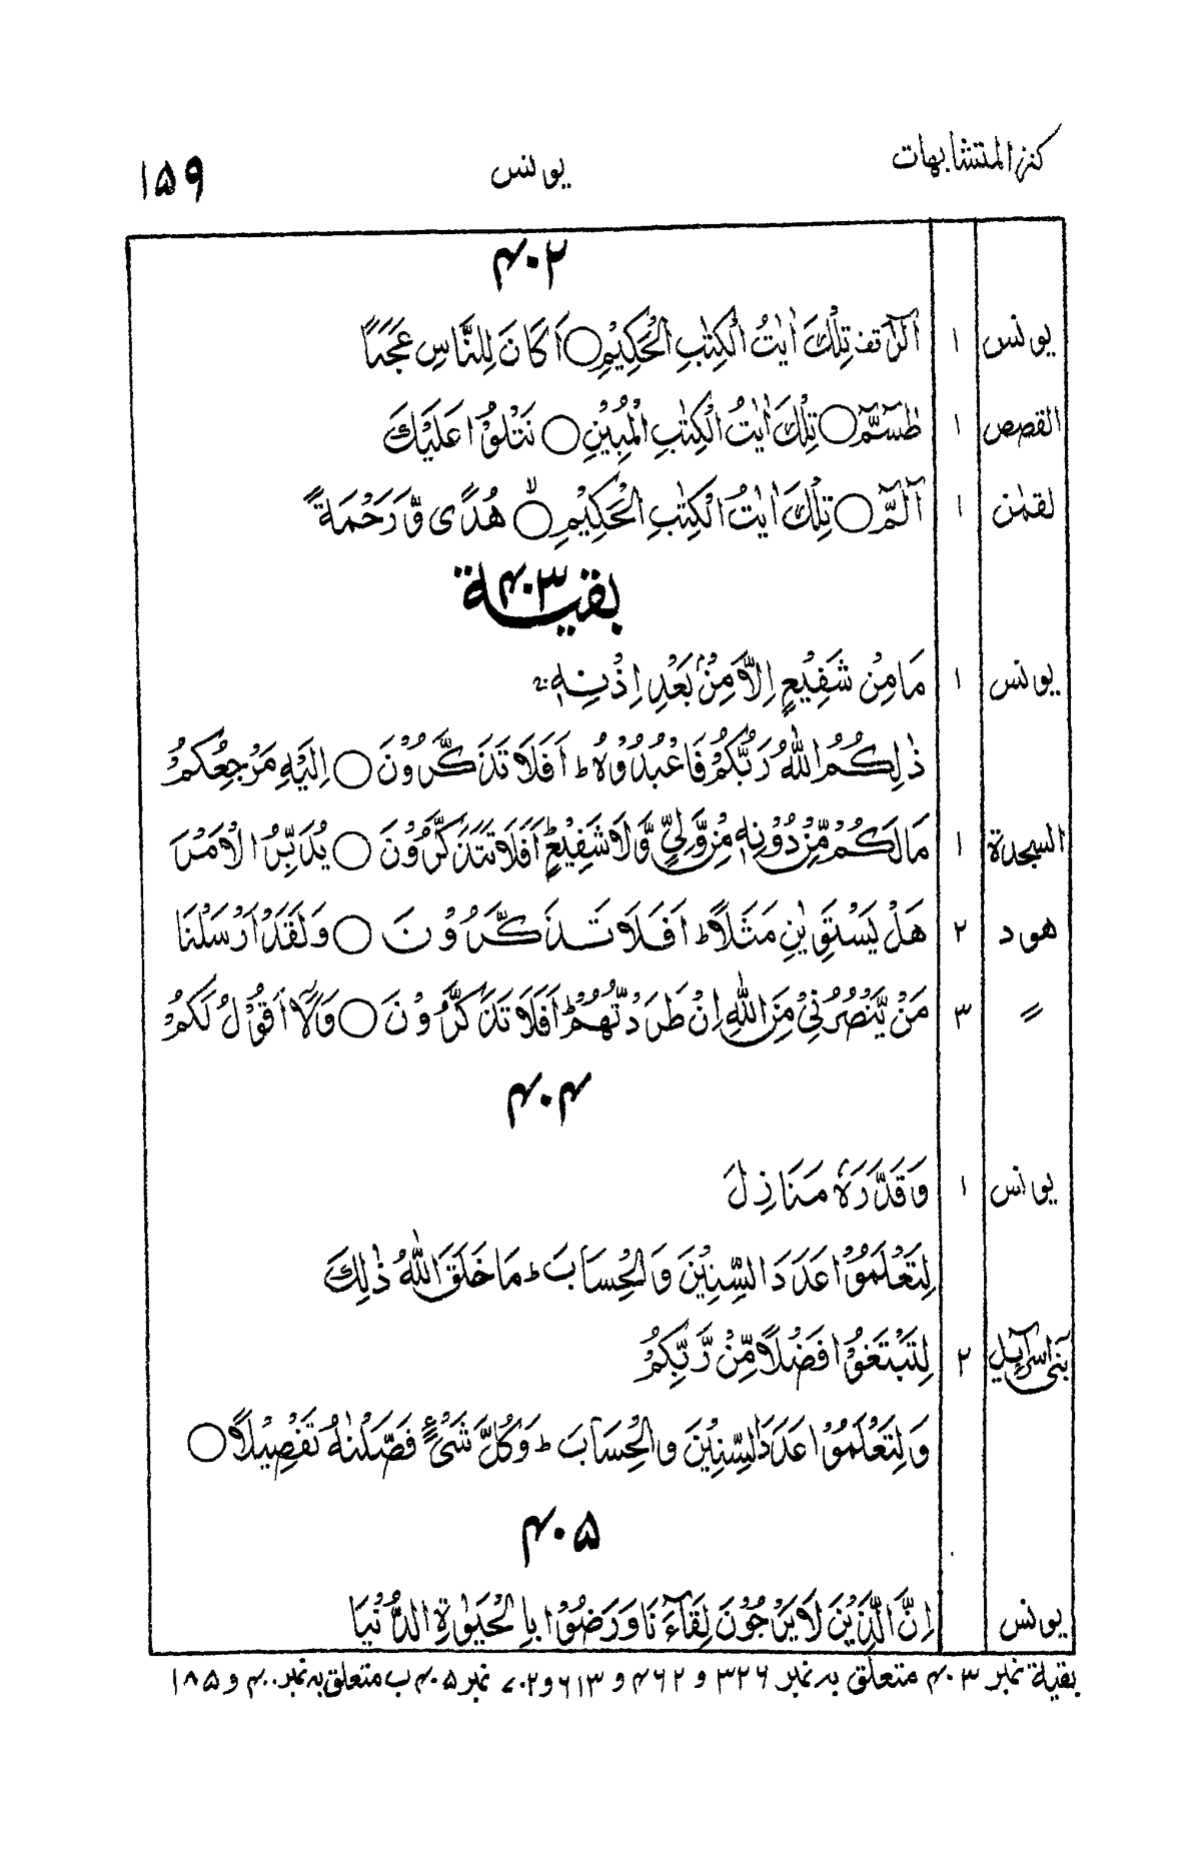 كنز المتشابهات يونس ١۵۹
۴۰۲
يونس ١ الٓرٰ قف تِلْكَ اٰيٰتُ الْكِتٰبِ الْحَكِيْمِ○ اَكَانَ لِلنَّاسِ عَجَبًا
القصص ١ طٰسٓمّٓ○ تِلْكَ اٰيٰتُ الْكِتٰبِ الْمُبِيْنِ○ نَتْلُوْا عَلَيْكَ
لقمٰن ١ الٓمّٓ○ تِلْكَ اٰيٰتُ الْكِتٰبِ الْحَكِيْمِ○ۙ هُدًى وَّرَحْمَةً
بقية ۴۰۳
يونس ١ مَا مِنْ شَفِيْعٍ اِلَّا مِنْۢ بَعْدِ اِذْنِهٖ
ذٰلِكُمُ اللّٰهُ رَبُّكُمْ فَاعْبُدُوْهُ ؕ اَفَلَا تَذَكَّرُوْنَ○ اِلَيْهِ مَرْجِعُكُمْ
السجدة ١ مَا لَكُمْ مِّنْ دُوْنِهٖ مِنْ وَّلِيٍّ وَّلَا شَفِيْعٍ ؕ اَفَلَا تَتَذَكَّرُوْنَ○ يُدَبِّرُ الْاَمْرَ
هود ٢ هَلْ يَسْتَوِيٰنِ مَثَلًا ؕ اَفَلَا تَذَكَّرُوْنَ○ وَلَقَدْ اَرْسَلْنَا
〃 ٣ مَنْ يَّنْصُرُنِيْ مِنَ اللّٰهِ اِنْ طَرَدْتُّهُمْ ؕ اَفَلَا تَذَكَّرُوْنَ○ وَلَآ اَقُوْلُ لَكُمْ
۴۰۴
يونس ١ وَقَدَّرَهٗ مَنَازِلَ
لِتَعْلَمُوْا عَدَدَ السِّنِيْنَ وَالْحِسَابَ ؕ مَا خَلَقَ اللّٰهُ ذٰلِكَ
بنى اسرآءيل ٢ لِتَبْتَغُوْا فَضْلًا مِّنْ رَّبِّكُمْ
وَلِتَعْلَمُوْا عَدَدَ السِّنِيْنَ وَالْحِسَابَ ؕ وَكُلَّ شَيْءٍ فَصَّلْنٰهُ تَفْصِيْلًا○
۴۰۵
يونس اِنَّ الَّذِيْنَ لَا يَرْجُوْنَ لِقَآءَنَا وَرَضُوْا بِالْحَيٰوةِ الدُّنْيَا
بقية نمبر ۴۰۳ متعلق به نمبر ۳۲۶ و ۴۶۲ و ۶۱۳ و ۷۰۲ نمبر ۴۰۵ ب متعلق به نمبر ۴۰۰ و ۱۸۵